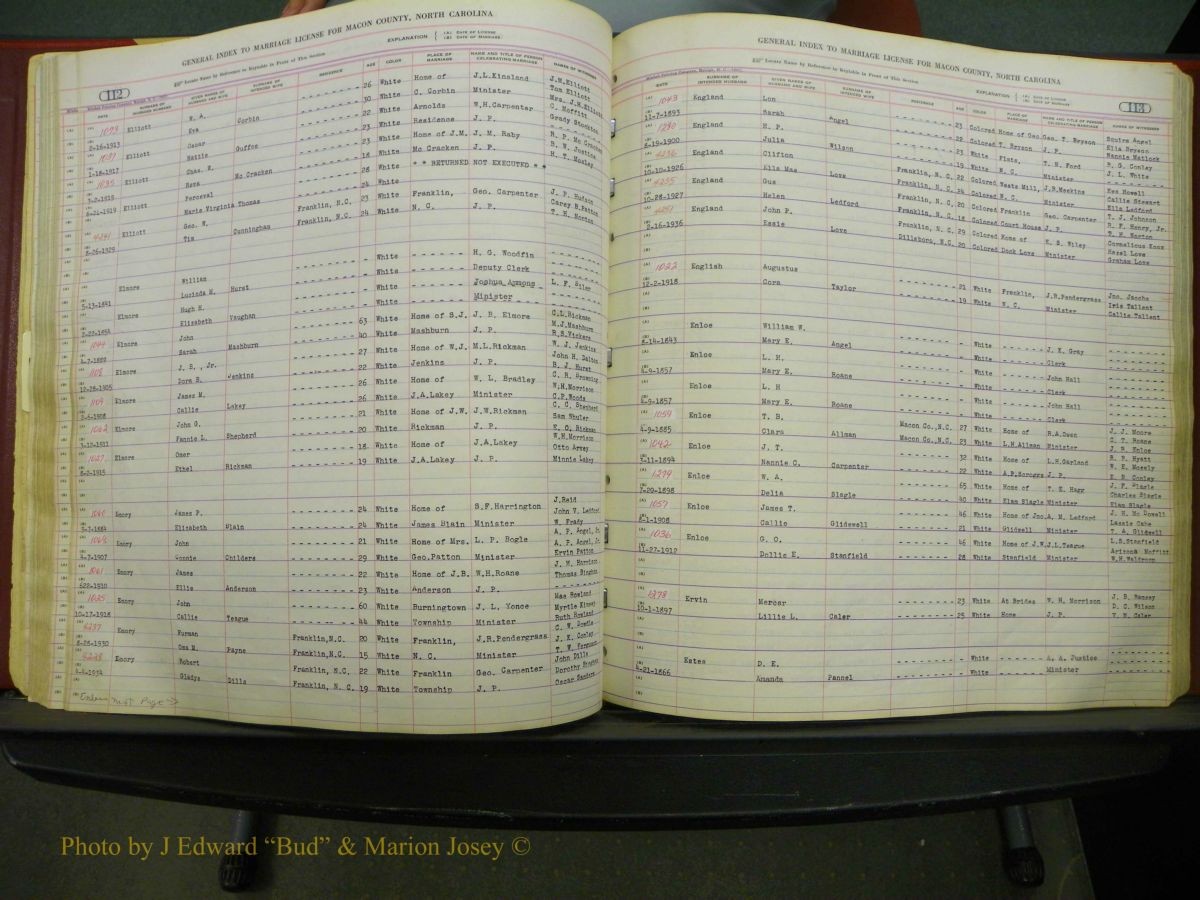 GENERAL INDEX TO MARRIAGE LICENSE FOR MACON COUNTY, NORTH CAROLINA
Locate Name by Reference to Keytable in Front of This Section
EXPLANATION { (A) DATE OF LICENSE (B) DATE OF MARRIAGE
112
DATE SURNAME OF INTENDED HUSBAND GIVEN NAMES OF HUSBAND AND WIFE SURNAME OF INTENDED WIFE RESIDENCE AGE COLOR PLACE OF MARRIAGE NAME AND TITLE OF PERSON CELEBRATING MARRIAGE NAMES OF WITNESSES
Elliott W. A. 26 White Home of J.L.Kinsland J.H.Elliott
2-16-1913 Eva Corbin 30 White C. Corbin Minister Tom Elliott
Elliott Oscar 22 White Arnolds W.H.Carpenter C. Moffitt
1-18-1917 Hattie Guffee 23 White Residence J. P. Grady Stockton
1035 Elliott Chas. W. 23 White Home of J.M. J. M. Raby R. P. Mc Cracken
3-2-1919 Reva Mc Cracken 18 White Mc Cracken J. P. B. W. Justice
Elliott Perceval 28 White * * RETURNED NOT EXECUTED * * H. T. Mosley
6-24-1919 Marie Virginia Thomas 24 White
4241 Elliott Geo. W. Franklin, N.C. 23 White Franklin, Geo. Carpenter J. P. Hudson
8-26-1929 Tim Cunningham Franklin, N.C. 24 White N. C. J. P. Carey B. Patton
T. H. Morton
Elmore William - White H. G. Woodfin
5-13-1841 Lucinda M. Hurst - White Deputy Clerk
Elmore Hugh H. - White Joshua Ammons L. F. Siler
2-22-1854 Elizabeth Vaughan - White Minister
1044 Elmore John 63 White Home of S.J. J. B. Elmore C.L.Rickman
4-7-1889 Sarah Mashburn 40 White Mashburn J. P. M.J.Mashburn
R.S.Vickers
Elmore J. B., Jr. 27 White Home of W.J. M.L.Rickman W. J. Jenkins
12-28-1905 Dora B. Jenkins 22 White Jenkins J. P. John H. Dalton
B. J. Hurst
1109 Elmore James M. 26 White Home of W. L. Bradley C. R. Browning
2-6-1908 Callie Lakey 26 White J.A.Lakey Minister W.H.Morrison
C.P.Woods
1062 Elmore John G. 21 White Home of J.W. J.W.Rickman C. C. Shepherd
3-12-1911 Fannie L. Shepherd 20 White Rickman J. P. Sam Shuler
1027 Elmore Omer 18 White Home of J.A.Lakey W.H.Morrison
8-2-1915 Ethel Rickman 19 White J.A.Lakey J. P. Otto Arvey
Minnie Lakey
1040 Emory James P. 24 White Home of S.F.Harrington J.Reid
Elizabeth Blain 24 White James Blain Minister John V. Ledford
W. Frady
Emory John 21 White Home of Mrs. L. P. Bogle A. P. Angel, Jr.
4-7-1907 Childers 29 White Geo.Patton Minister Ervin Patton
1061 Emory James 22 White Home of J.B. W.H.Roane J. W. Harrison
Ellie Anderson 23 White Anderson J. P. Thomas Bingham
1025 Emory John 60 White Burningtown J. L. Yonce Mae Rowland
10-17-1918 Callie Teague 44 White Township Minister Myrtle Kinsey
Ruth Rowland
Emory Furman Franklin,N.C. 20 White Franklin, J.R.Pendergrass
6-28-1930 Oma M. Payne Franklin,N.C. 15 White N. C. Minister J. E. Conley
Emory Robert Franklin, N.C. 22 White Franklin Geo. Carpenter John Dills
4-4-1934 Gladys Dills Franklin, N. C. 19 White Township J. P. Oscar Sanders
Enloe Next Page →
GENERAL INDEX TO MARRIAGE LICENSE FOR MACON COUNTY, NORTH CAROLINA
Locate Name by Reference to Keytable in Front of This Section
EXPLANATION { (A) DATE OF LICENSE (B) DATE OF MARRIAGE
113
DATE SURNAME OF INTENDED HUSBAND GIVEN NAMES OF HUSBAND AND WIFE SURNAME OF INTENDED WIFE RESIDENCE AGE COLOR PLACE OF MARRIAGE NAME AND TITLE OF PERSON CELEBRATING MARRIAGE NAMES OF WITNESSES
1043 England Lon 23 Colored Home of Geo. Geo. T. Bryson Squire Angel
11-7-1893 Sarah Angel 22 Colored T. Bryson J. P. Ella Bryson
Nannie Matlock
England H. P. 23 White Flats, T. N. Ford R. G. Conley
6-19-1900 Julia Wilson 19 White N. C. Minister J. L. White
England Clifton Franklin, N. C. 22 Colored Wests Mill, J.R.Meekins Kes Howell
10-10-1926 Ella Mae Love Franklin, N. C. 24 Colored N.C. Minister Callie Stewart
Ella Ledford
England Gus Franklin, N.C. 20 Colored Franklin Geo. Carpenter T. J. Johnson
10-28-1927 Helen Ledford Franklin, N.C. 18 Colored Court House J. P. R. F. Henry, Jr.
England John P. Franklin, N.C. 29 Colored Home of E. B. Wiley Cornelious Knox
2-16-1936 Essie Love Dillsboro, N.C. 20 Colored Dock Love Minister Hazel Love
Graham Love
1022 English Augustus 21 White Franklin, J.R.Pendergrass Jno. Jacobs
12-2-1918 Cora Taylor 19 White N. C. Minister Iris Tallent
Callie Tallent
Enloe William W. - White J. K. Gray
8-14-1843 Mary E. Angel - White Clerk
Enloe L. H. - White John Hall
4-9-1857 Mary E. Roane - White Clerk
Enloe L. H - White John Hall
4-9-1857 Mary E. Roane - White Clerk
1059 Enloe T. B. Macon Co.,N.C. 27 White Home of R.A.Owen J. J. Moore
4-9-1885 Clara Allman Macon Co.,N.C. 23 White L.H.Allman Minister C. T. Roane
J. B. Enloe
1042 Enloe J. T. 32 White Home of L.H.Garland R. T. Hyatt
3-11-1894 Nannie C. Carpenter 22 White J. P. W. E. Mosely
Enloe W. A. 65 White Home of T. E. Wagg J. F. Slagle
7-20-1898 Delia Slagle 40 White Elam Slagle Minister Charles Slagle
Elam Slagle
1057 Enloe James T. 46 White Home of Jno. A. M. Ledford J. H. Mc Dowell
8-1-1908 Callie Glidewell 21 White Glidwell Minister Lassie Cabe
J. A. Glidwell
1036 Enloe G. O. 46 White Home of J.W. J.L.Teague L.B.Stanfield
11-27-1912 Dollie E. Stanfield 28 White Stanfield Minister Arizona Moffitt
W.H.Waldroop
1278 Ervin Mercer 23 White At Brides W. H. Morrison J. B. Ramsey
10-1-1897 Lillie L. Caler 25 White Home J. P. D. C. Wilson
Estes D. E. - White A. A. Justice
4-21-1866 Amanda Pannel - White Minister
Photo by J Edward “Bud” & Marion Josey ©